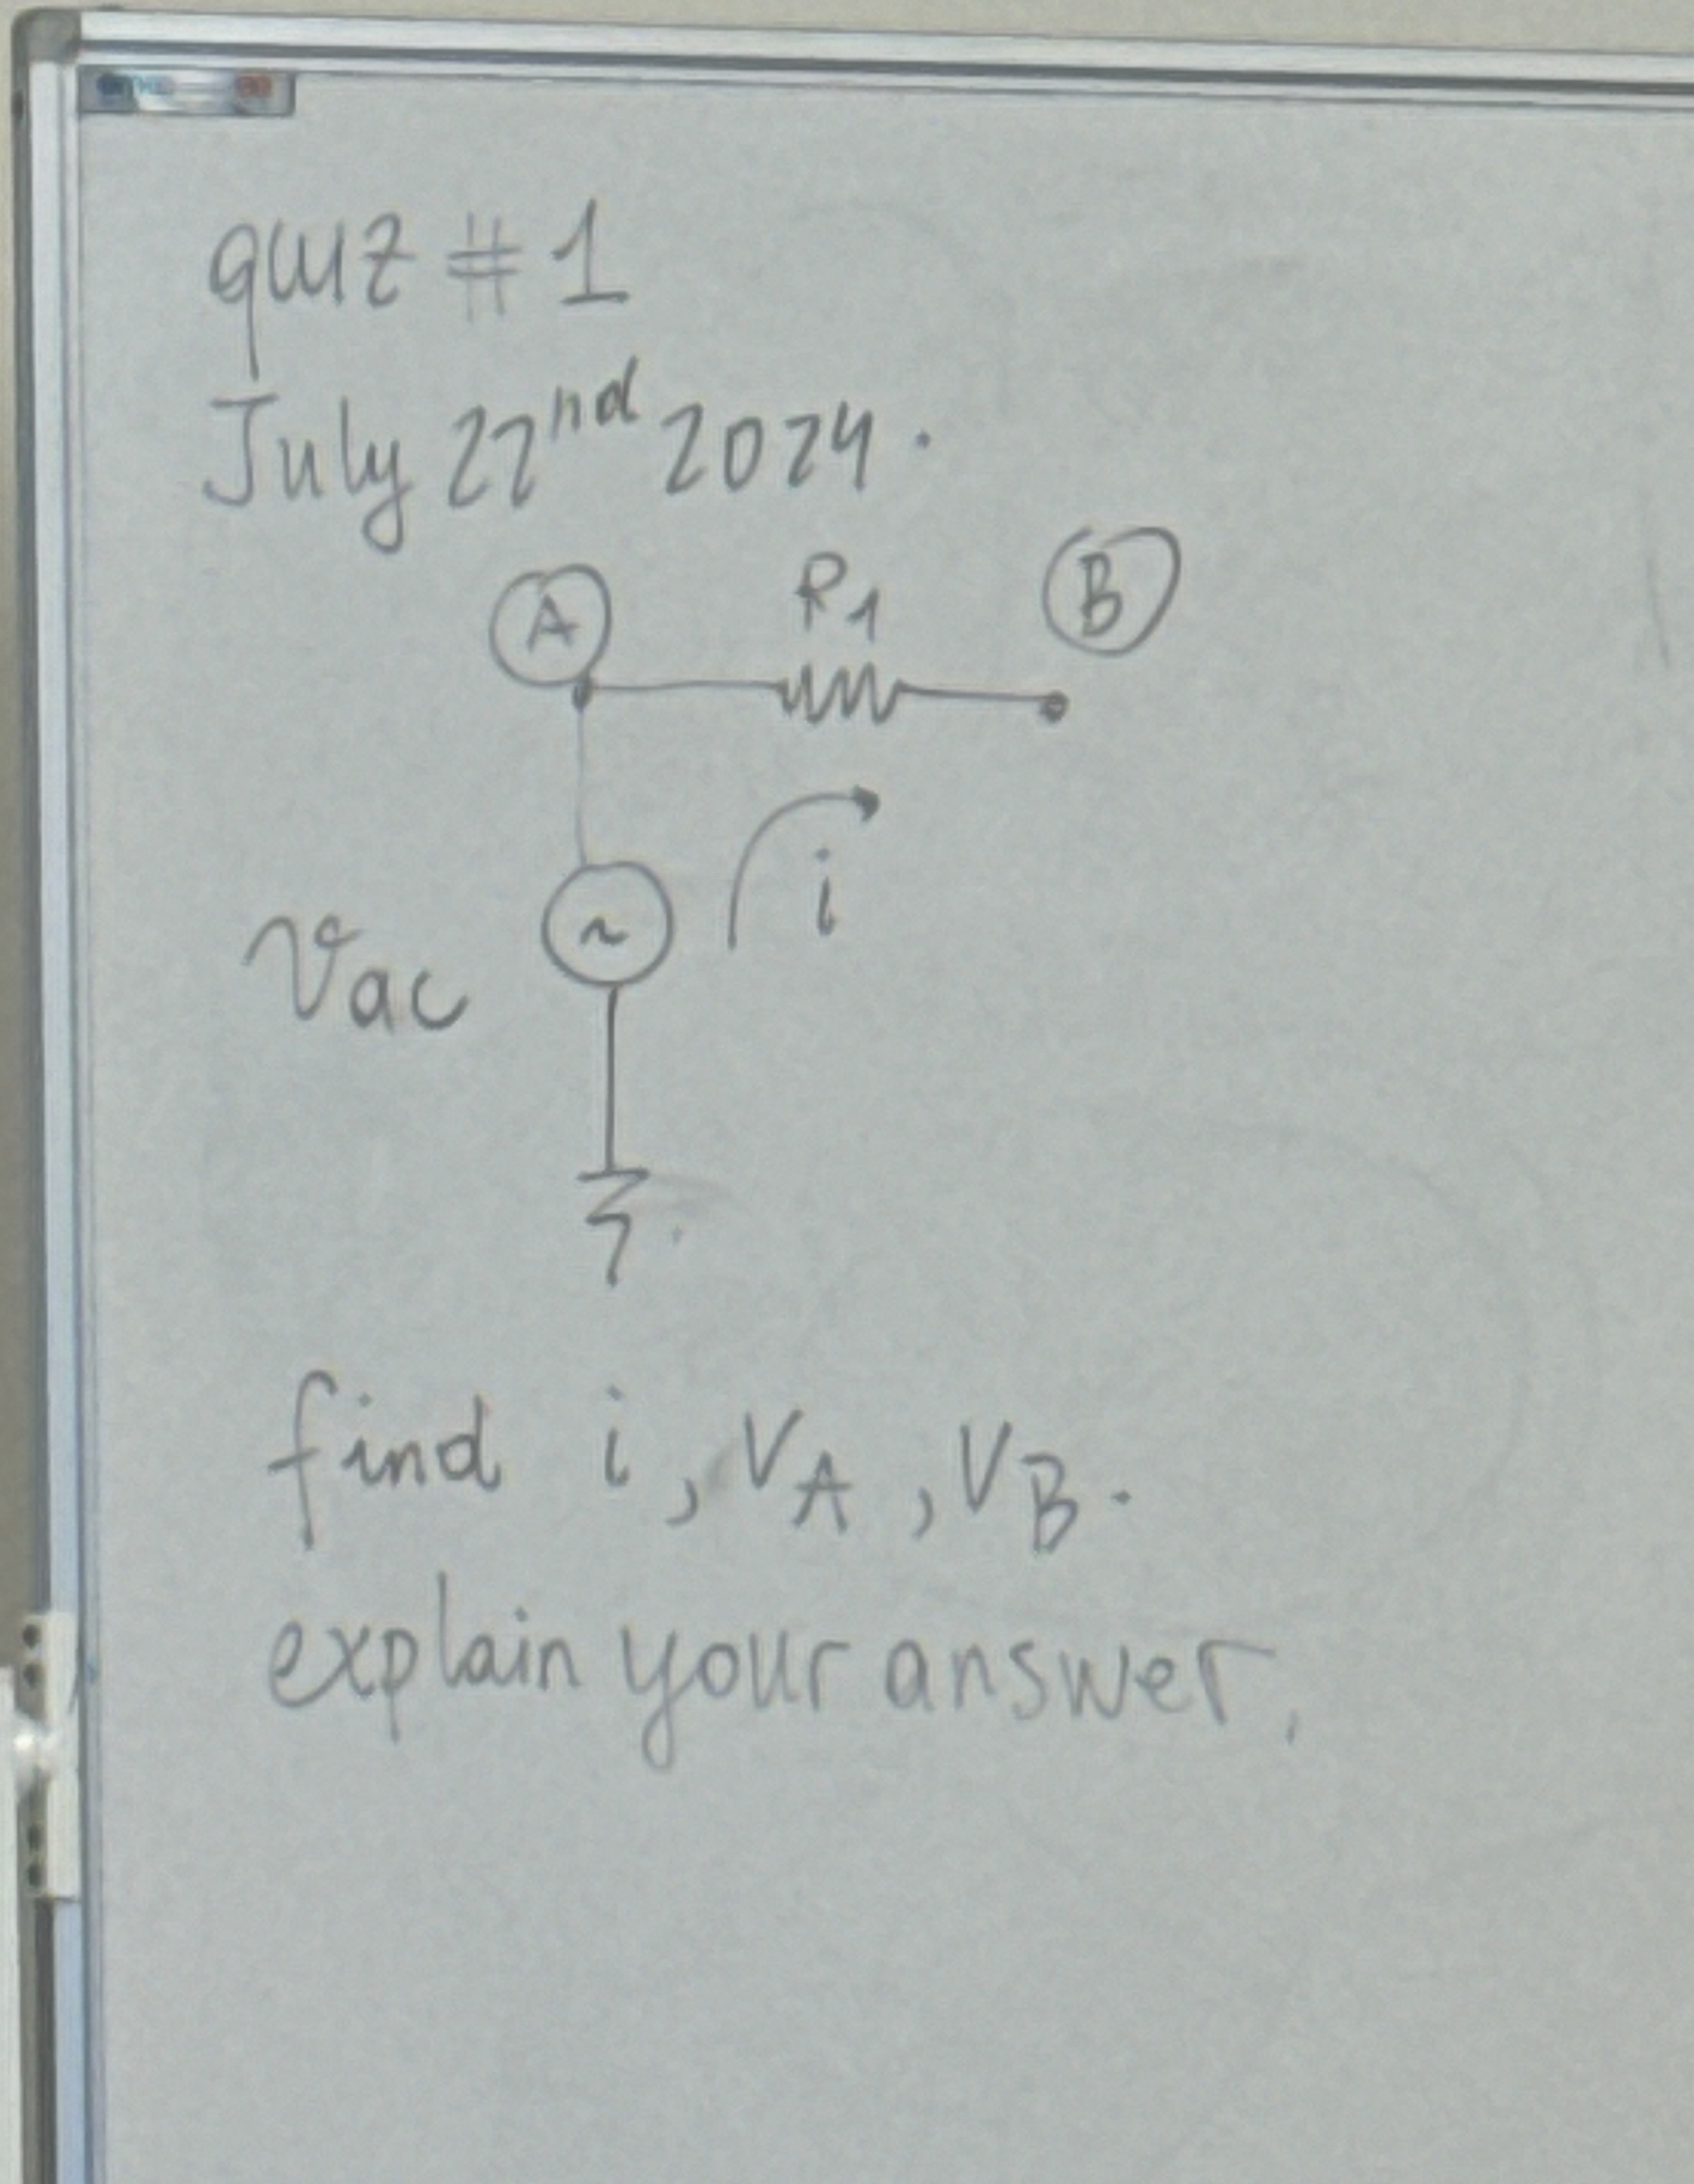 quiz # 1
July 22nd 2024.
A R1 B
i
Vac
~
find i, VA, VB.
explain your answer.